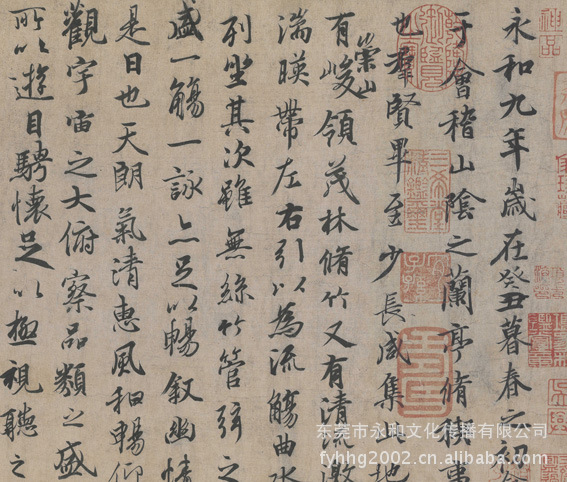 永和九年歲在癸丑暮春之初
于會稽山陰之蘭亭脩禊事
也羣賢畢至少長咸集此地
有崇山峻領茂林脩竹又有清流激
湍暎帶左右引以為流觴曲水
列坐其次雖無絲竹管弦之
盛一觴一詠亦足以暢敘幽情
是日也天朗氣清惠風和暢仰
觀宇宙之大俯察品類之盛
所以遊目騁懷足以極視聽之
神品
東莞市永和文化传播有限公司
fyhhg2002.cn.alibaba.com